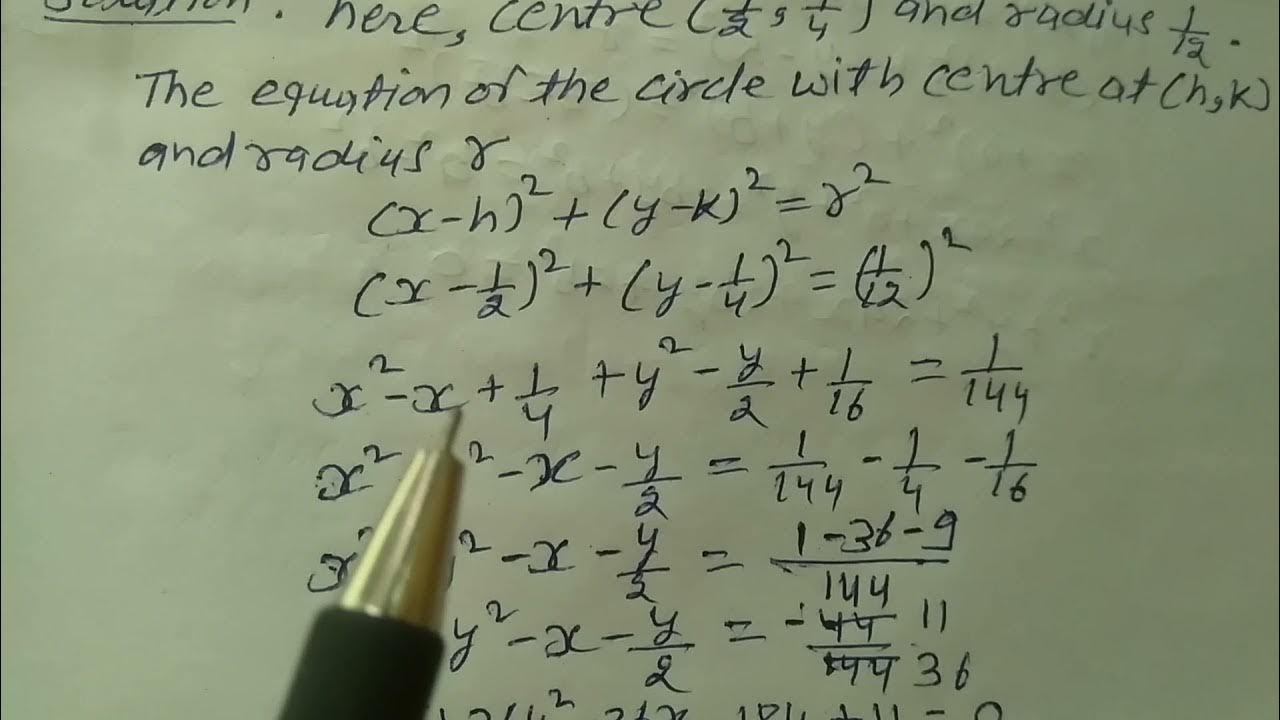 Solution. here, centre (1/2, 1/4) and radius 1/12.
The equation of the circle with centre at (h,k)
and radius r
(x-h)² + (y-k)² = r²
(x - 1/2)² + (y - 1/4)² = (1/12)²
x² - x + 1/4 + y² - y/2 + 1/16 = 1/144
x² ² - x - y/2 = 1/144 - 1/4 - 1/16
x² ² - x - y/2 = (1-36-9)/144
y² - x - y/2 = - 44/144 11/36